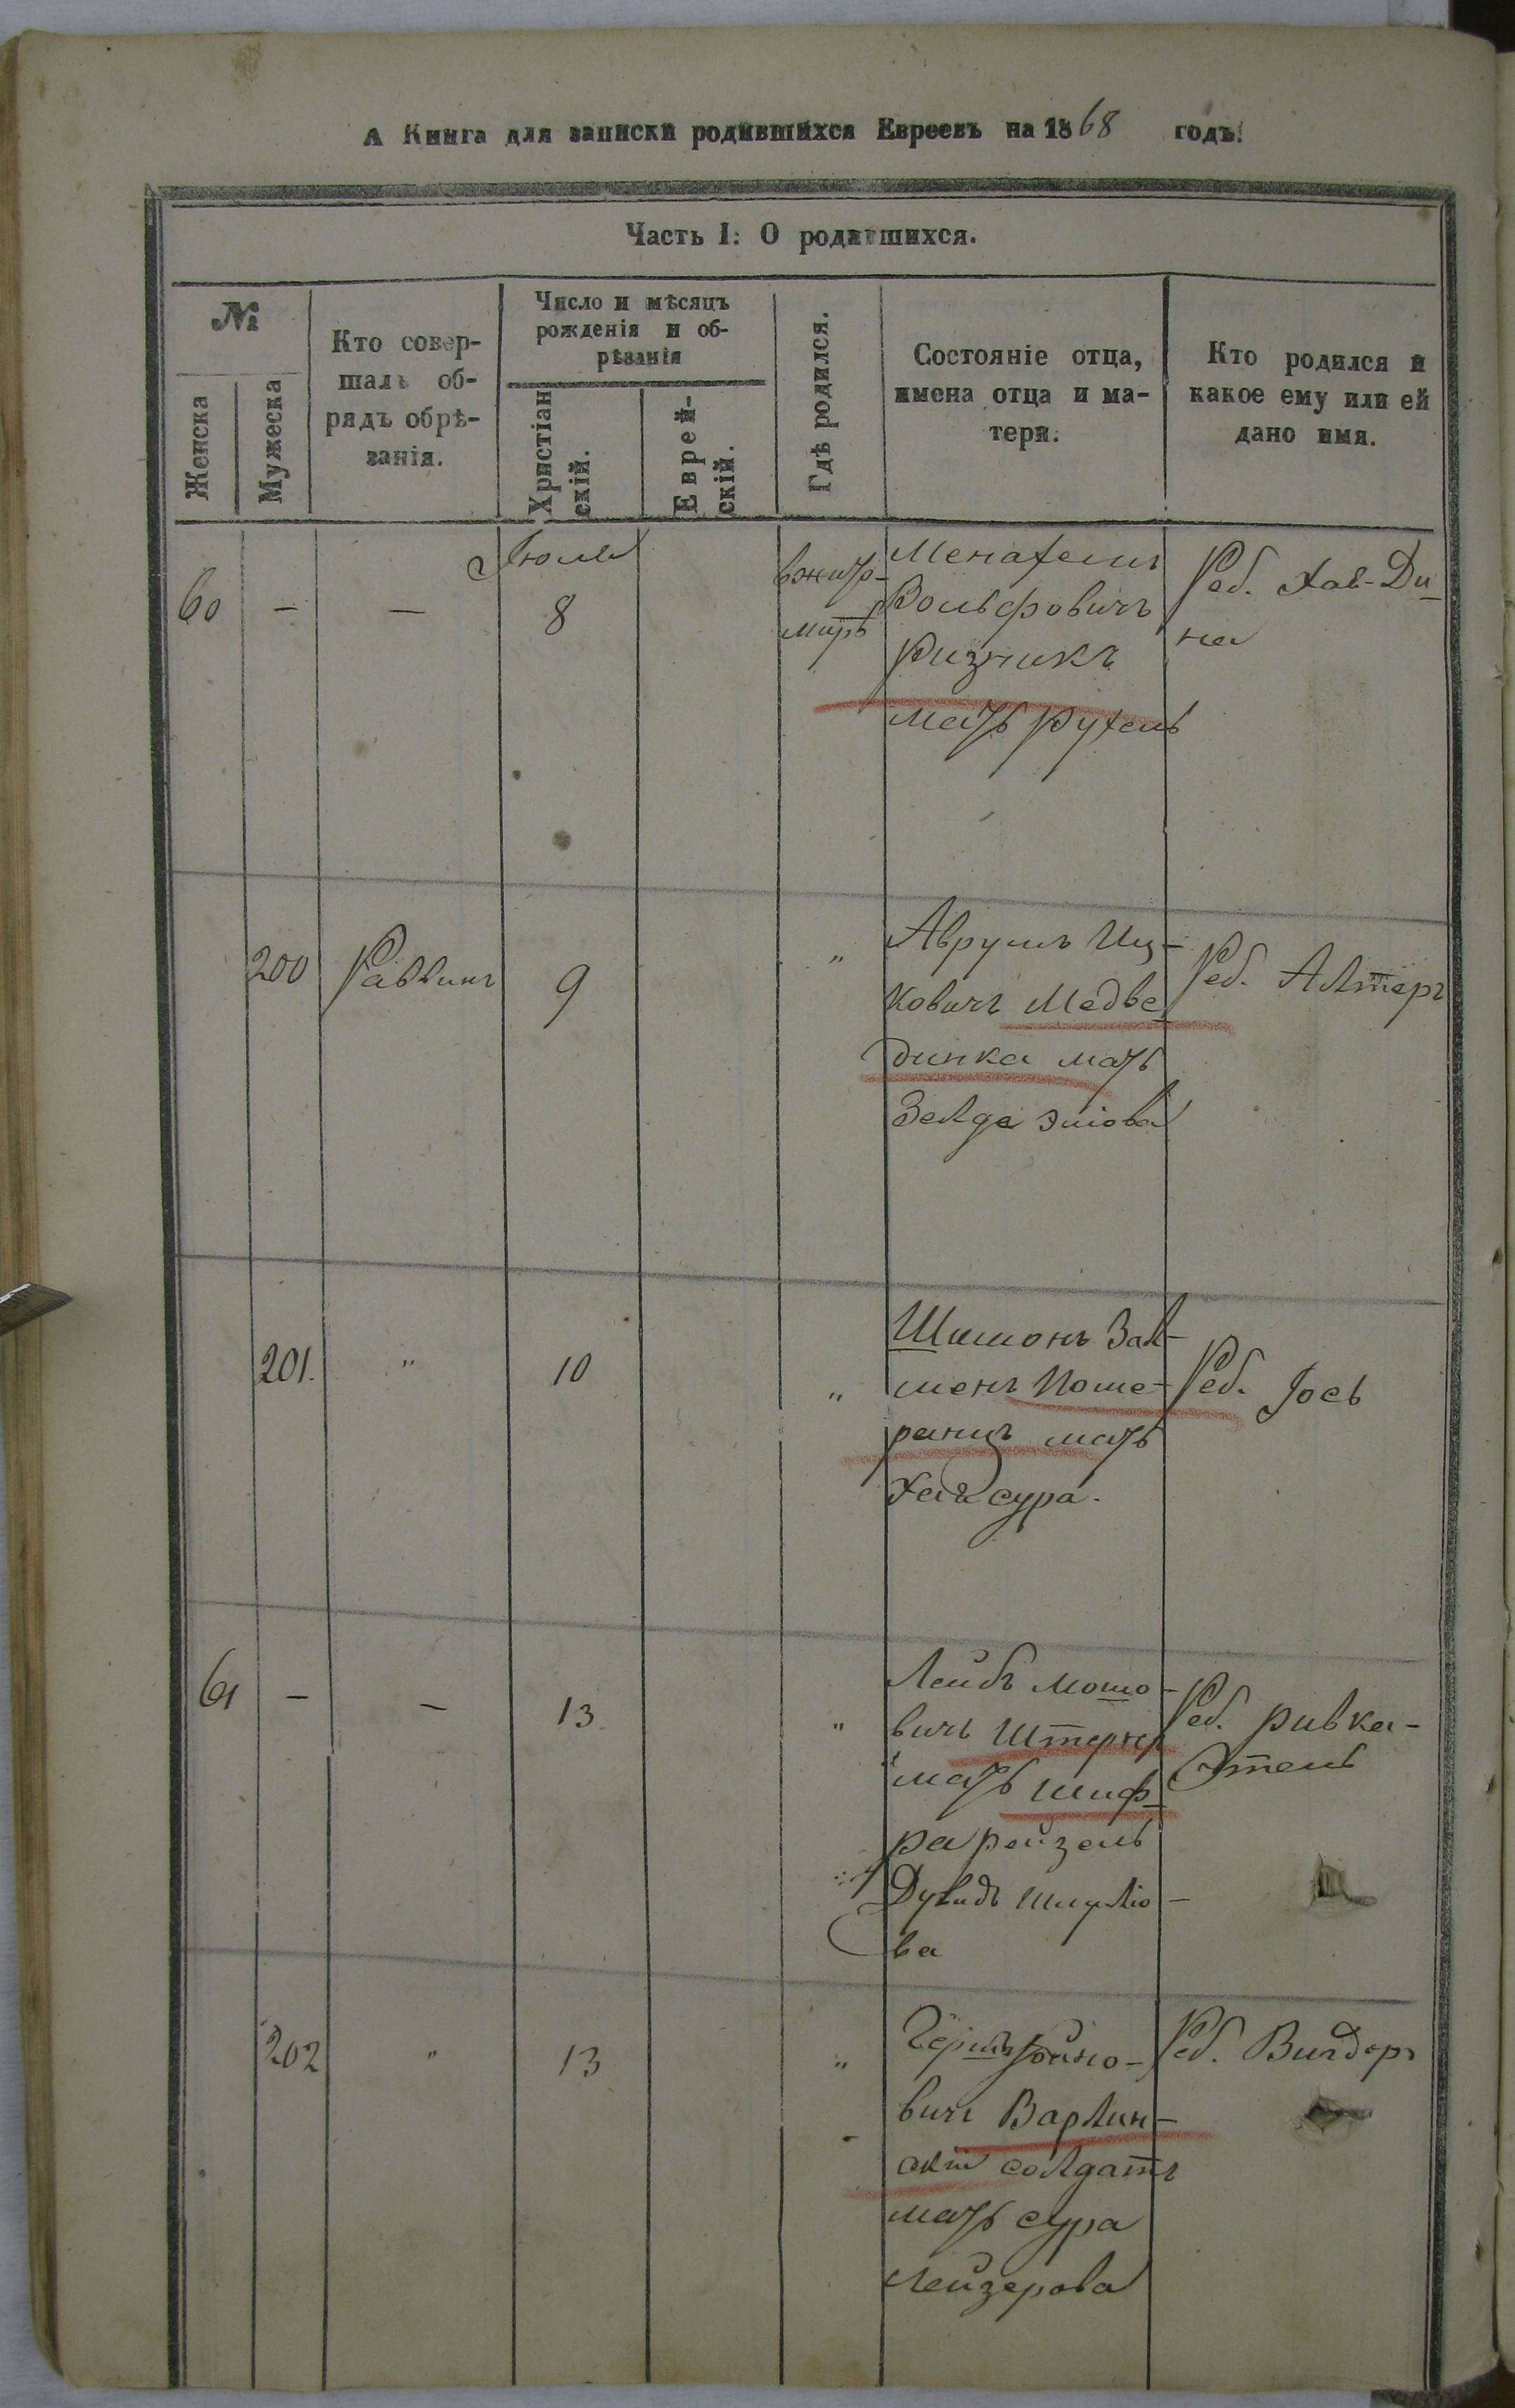 А Книга для записки родившихся Евреевъ на 1868 годъ.
Часть I: О родившихся.
№
Женска
Мужеска
Кто совер-
шалъ об-
рядъ обрѣ-
занія.
Число и мѣсяцъ
рожденія и об-
рѣзанія
Христіан
скій.
Еврей-
скій.
Гдѣ родился.
Состояніе отца,
имена отца и ма-
тери.
Кто родился и
какое ему или ей
дано имя.
Іюля
60 — — 8
вжито-
мирѣ
Менахемъ
Вольфовичъ
Ризникъ
мать Рухель
Реб. Хав-Ди-
на
200 Раввинъ 9 "
Аврумъ Иц-
ковичъ Медве-
динка мать
Зелда Эліова
Реб. Алтеръ
201. " 10 "
Шимонъ Зал-
менъ Поме-
ранцъ мать
Хая сура.
Реб. Іось
61 — — 13 "
Лейбъ Мошо-
вичъ Штернер
мать Шиф-
ра рейзель
Дувидъ Шмуліо-
ва
Реб. Ривка-
Этель
202 " 13 "
Гершъ
вичъ Варлин-
скій солдатъ
мать сура
Лейзерова
Реб. Вигдоръ